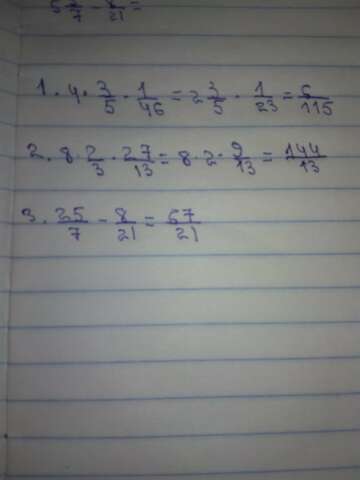 5 2/7 - 8/21 =
1. 4 · 3/5 · 1/46 = 2 3/5 · 1/23 = 6/115
2. 8 · 2/3 · 27/13 = 8 · 2 · 9/13 = 144/13
3. 25/7 - 8/21 = 67/21